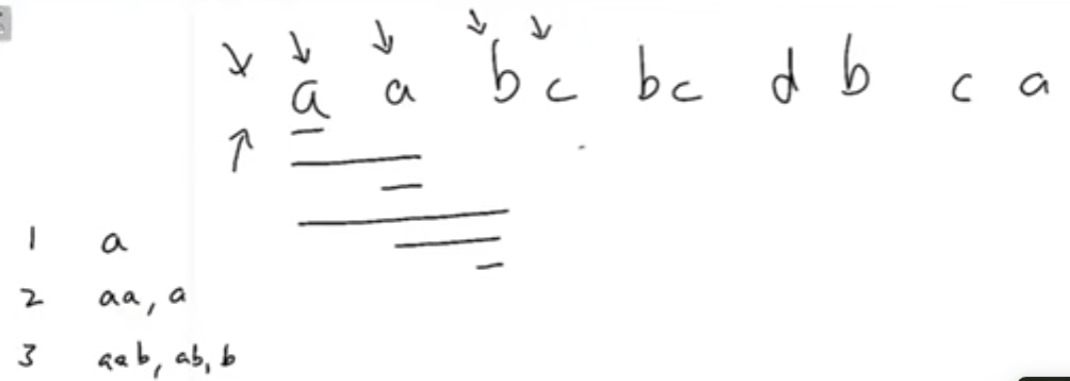 a a b c b c d b c a
1 a
2 aa, a
3 aab, ab, b